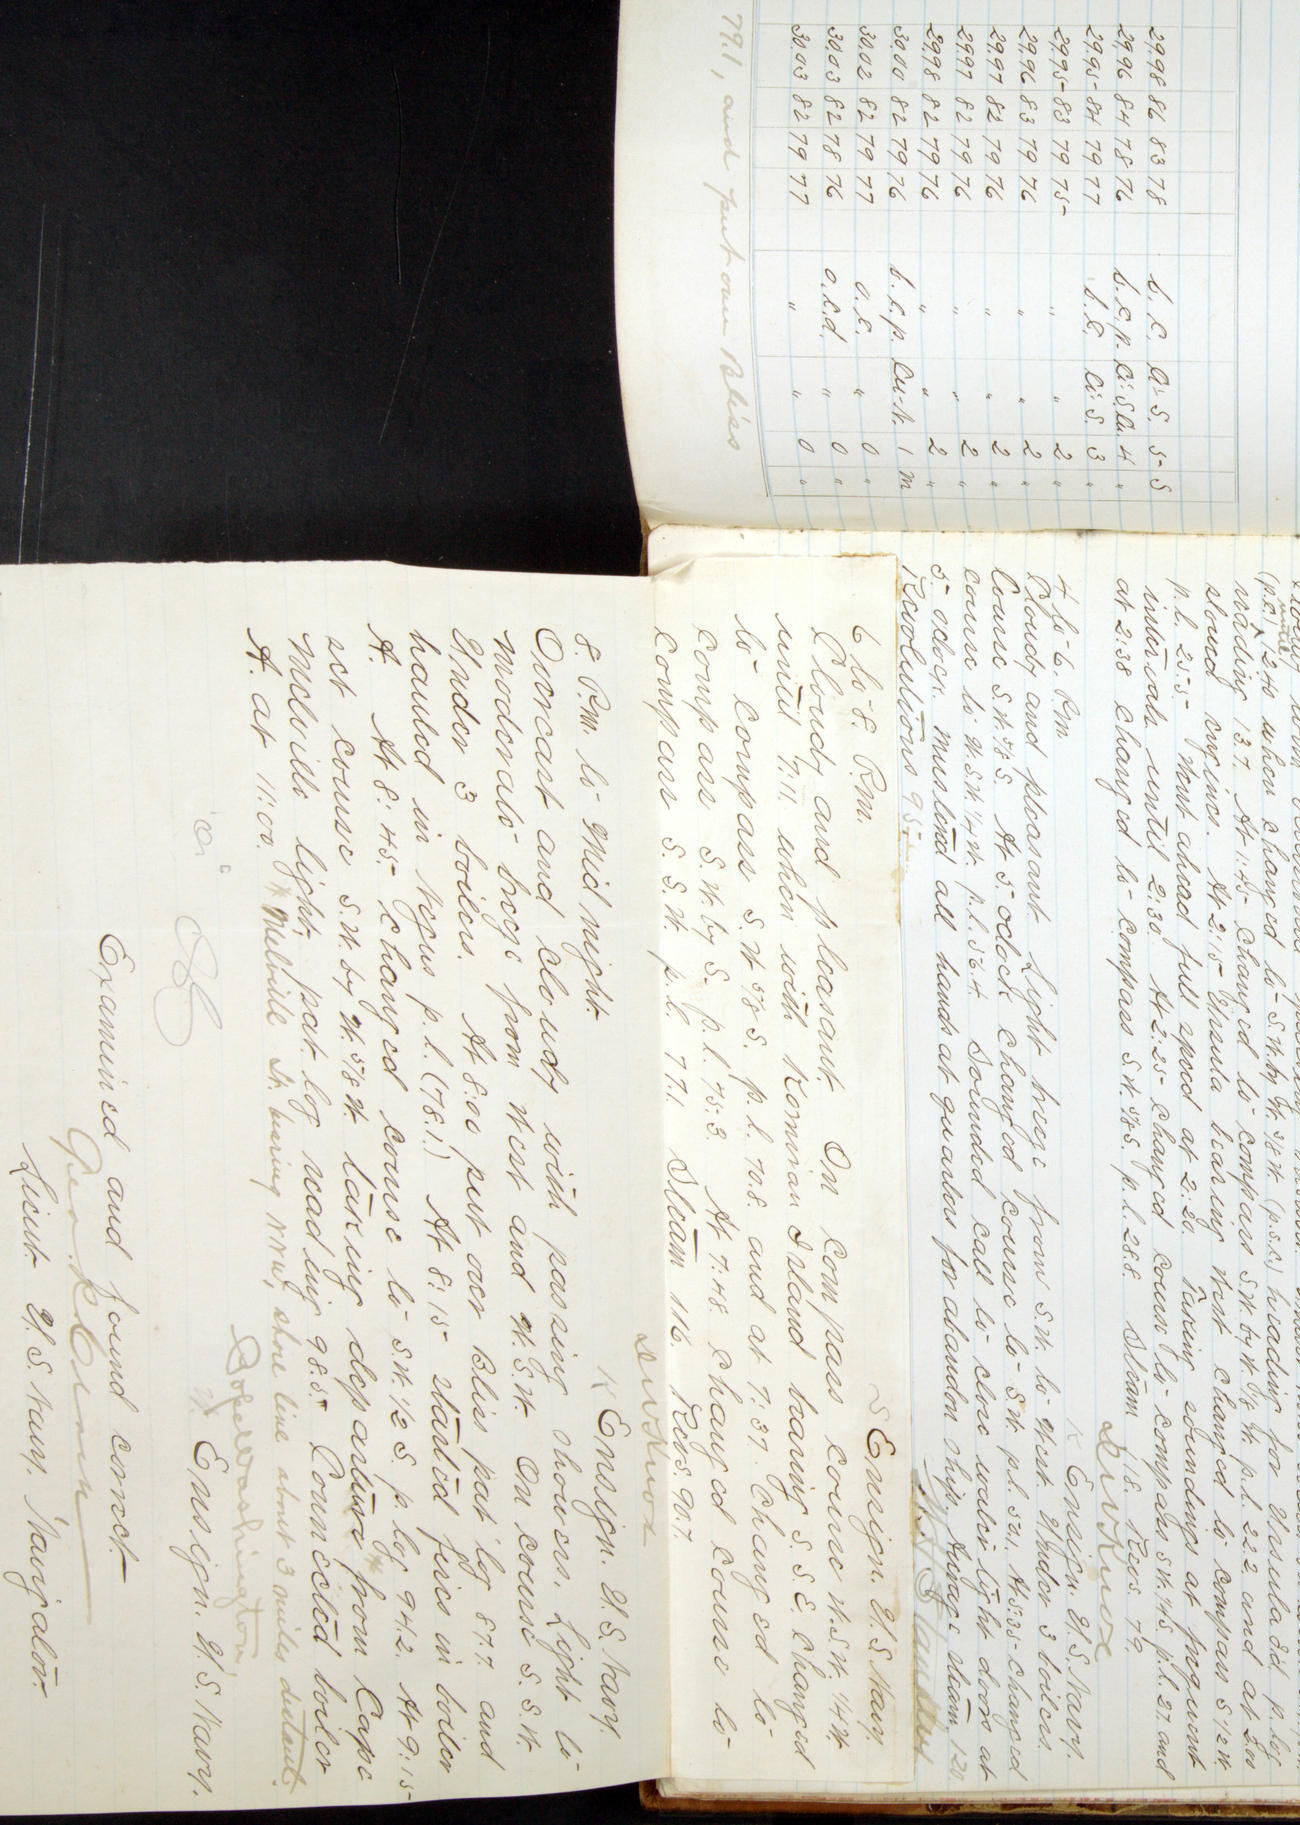 29.98 86 83 78 b.c. Ci-S. 5 S
29.96 84 78 76 b.c.p. Ci.S.Cu. 4 "
29.95 84 79 77 b.c. Ci.S. 3 "
29.95 83 79 75 " " 2 "
29.96 83 79 76 " " 2 "
29.97 82 79 76 " " 2 "
29.97 82 79 76 " " 2 "
29.98 82 79 76 " " 2 "
30.00 82 79 76 b.c.p. Cu-N. 1 m
30.02 82 79 77 o.c. " 0 "
30.03 82 78 76 o.c.d. " 0 "
30.03 82 79 77 " " 0 "
79.1, and put over Bliss
(p.c.) until 2:40 when changed to S.W. by W. 3/8 W. (p.s.c.) heading for Ursula Id. p. log
reading 13.7. At 1:45 changed to compass S.W. by W. 7/8 W. p.l. 22.2 and at 2:00
slowed engines. At 2:15 Ursula bearing West changed to compass S 1/2 W.
p.l. 25.5. Went ahead full speed at 2:20. Taking soundings at frequent
intervals until 2:30. At 2:25 changed course to compass S.W. 1/4 S. p.l. 27. and
at 2:38 changed to compass S.W. 3/8 S. p.l. 28.8. Steam 118. Revs. 79.
D W Knox
Ensign. U.S. Navy.
4 to 6. P.m
Cloudy and pleasant. Light breeze from S.W. to West. Under 3 boilers.
Course S.W. 3/8 S. At 5 o'clock changed course to S.W. p.l. 52.1. At 5:35 changed
course to W.S.W. 1/4 W. p.l. 56.4. Sounded call to close water tight doors at
5 o'clock. mustered all hands at quarters for abandon ship. Average steam, 120
Revolutions 95
Ensign. U.S. Navy.
6 to 8. P.m.
Cloudy and pleasant. On compass course W.S.W. 1/4 W
until 7:11 when with Komiran Island bearing S.S.E. changed
to compass S.W. 5/8 S. p.l. 70.8 and at 7:37. Changed to
compass S.W. by S. p.l. 75.3. At 7:48 changed course to
compass S.S.W. p.l. 77.1. Steam 116. Revs. 90.7.
D W Knox
Ensign. U.S. Navy.
8. P.m. to Mid night.
Overcast and cloudy with passing showers. Light to
moderate breeze from West and W.S.W. On course S.S.W.
Under 3 boilers. At 8:00 put over Bliss pat log 87.7 and
hauled in Negus p.l. (78.1.) At 8:15 started fires in boiler
A. At 8:45 changed course to S.W. 1/2 S. p log 94.2. At 9:15
set course S.W. by W. 5/8 W. taking departure * from Cape
Melville light; pat. log reading 98.5. Connected boiler
A. at 11:00. * Melville Lt. bearing NNW, shore line about 3 miles distant.
Pope Washington
Ensign. U.S. Navy.
Examined and found correct
Lieut. U.S. Navy. Navigator.